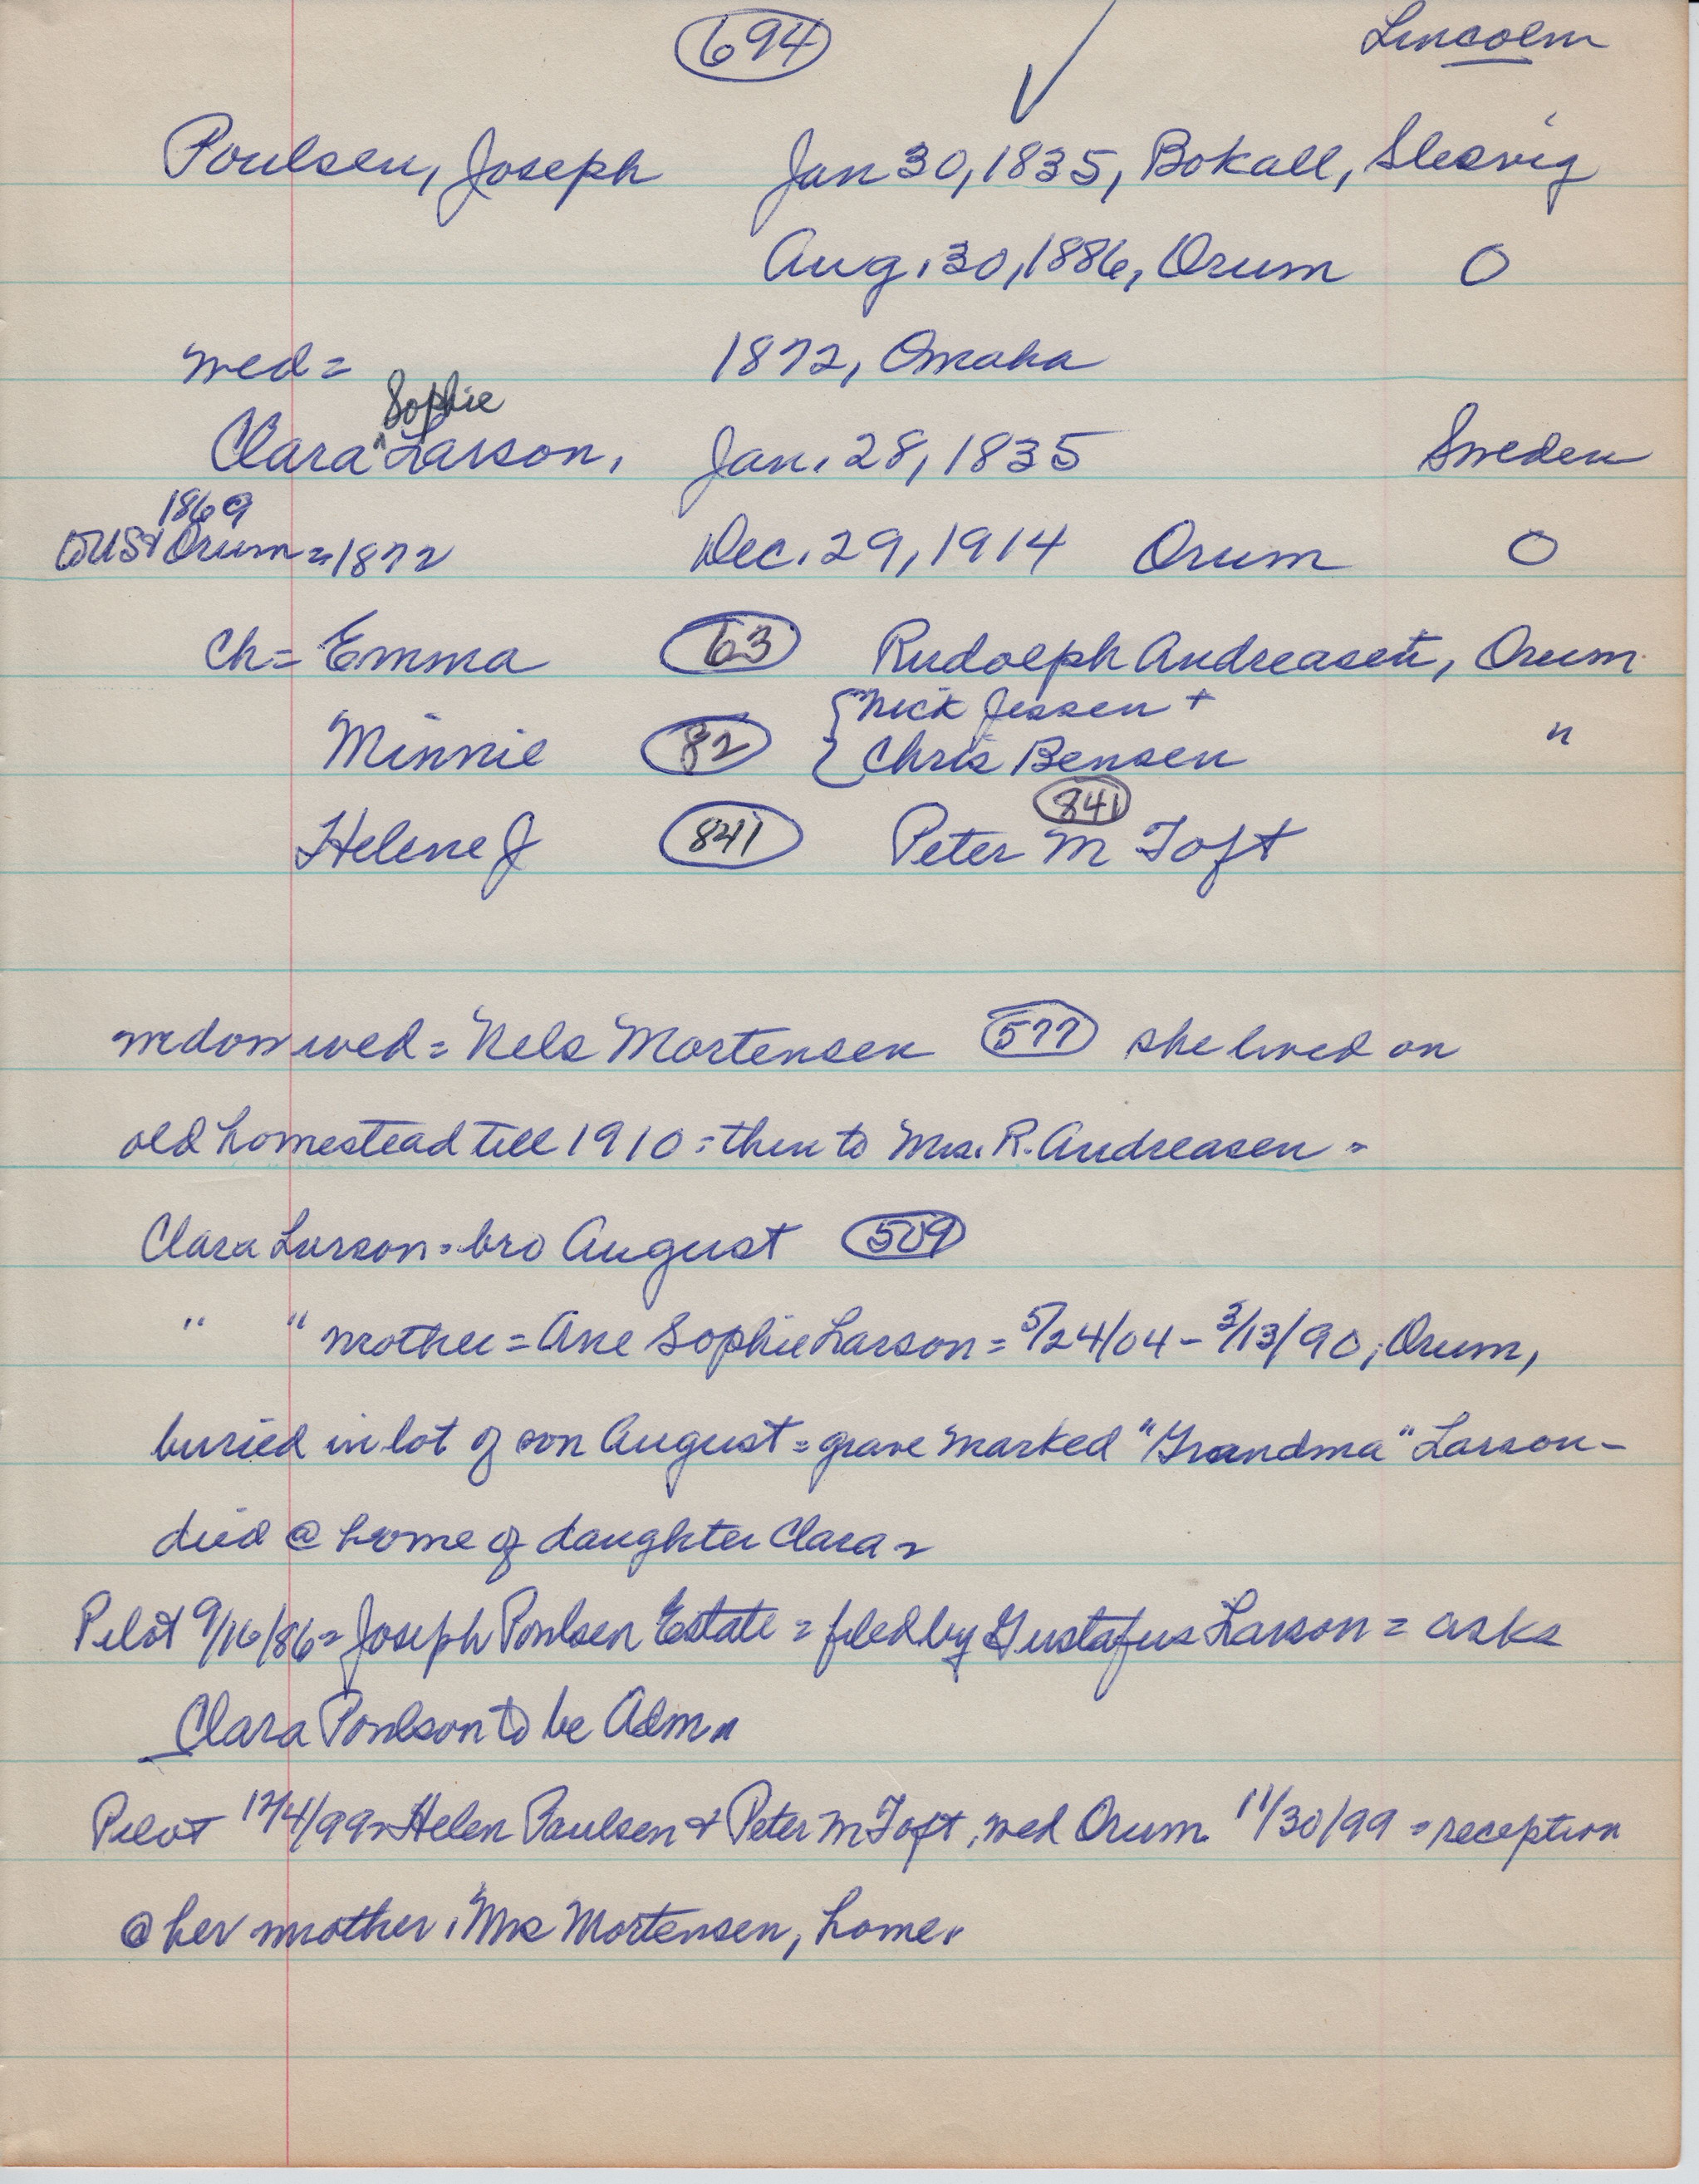 694 Lincoln
Poulsen, Joseph Jan 30, 1835, Bokall, Slesvig
Aug. 30, 1886, Orum O
wed = 1872, Omaha
Sophie
Clara ^ Larson, Jan. 28, 1835 Sweden
1869
to US & Orum = 1872 Dec. 29, 1914 Orum O
ch = Emma 63 Rudolph Andreasen, Orum
{ Nick Jessen +
Minnie 82 Chris Bensen "
841
Helene J 841 Peter M Toft
widow wed = Nels Mortensen 577 she lived on
old homestead till 1910 = then to Mrs. R. Andreasen =
Clara Larson = bro August 509
" " mother = Ane Sophie Larson = 5/24/04 - 3/13/90, Orum,
buried in lot of son August = grave marked "Grandma" Larson -
died @ home of daughter Clara =
Pilot 9/16/86 = Joseph Poulsen Estate = filed by Gustafus Larson = asks
Clara Poulson to be Adm.
Pilot 12/4/99 = Helen Paulsen & Peter M Toft, wed Orum 11/30/99 = reception
@ her mother, Mrs Mortensen, home.